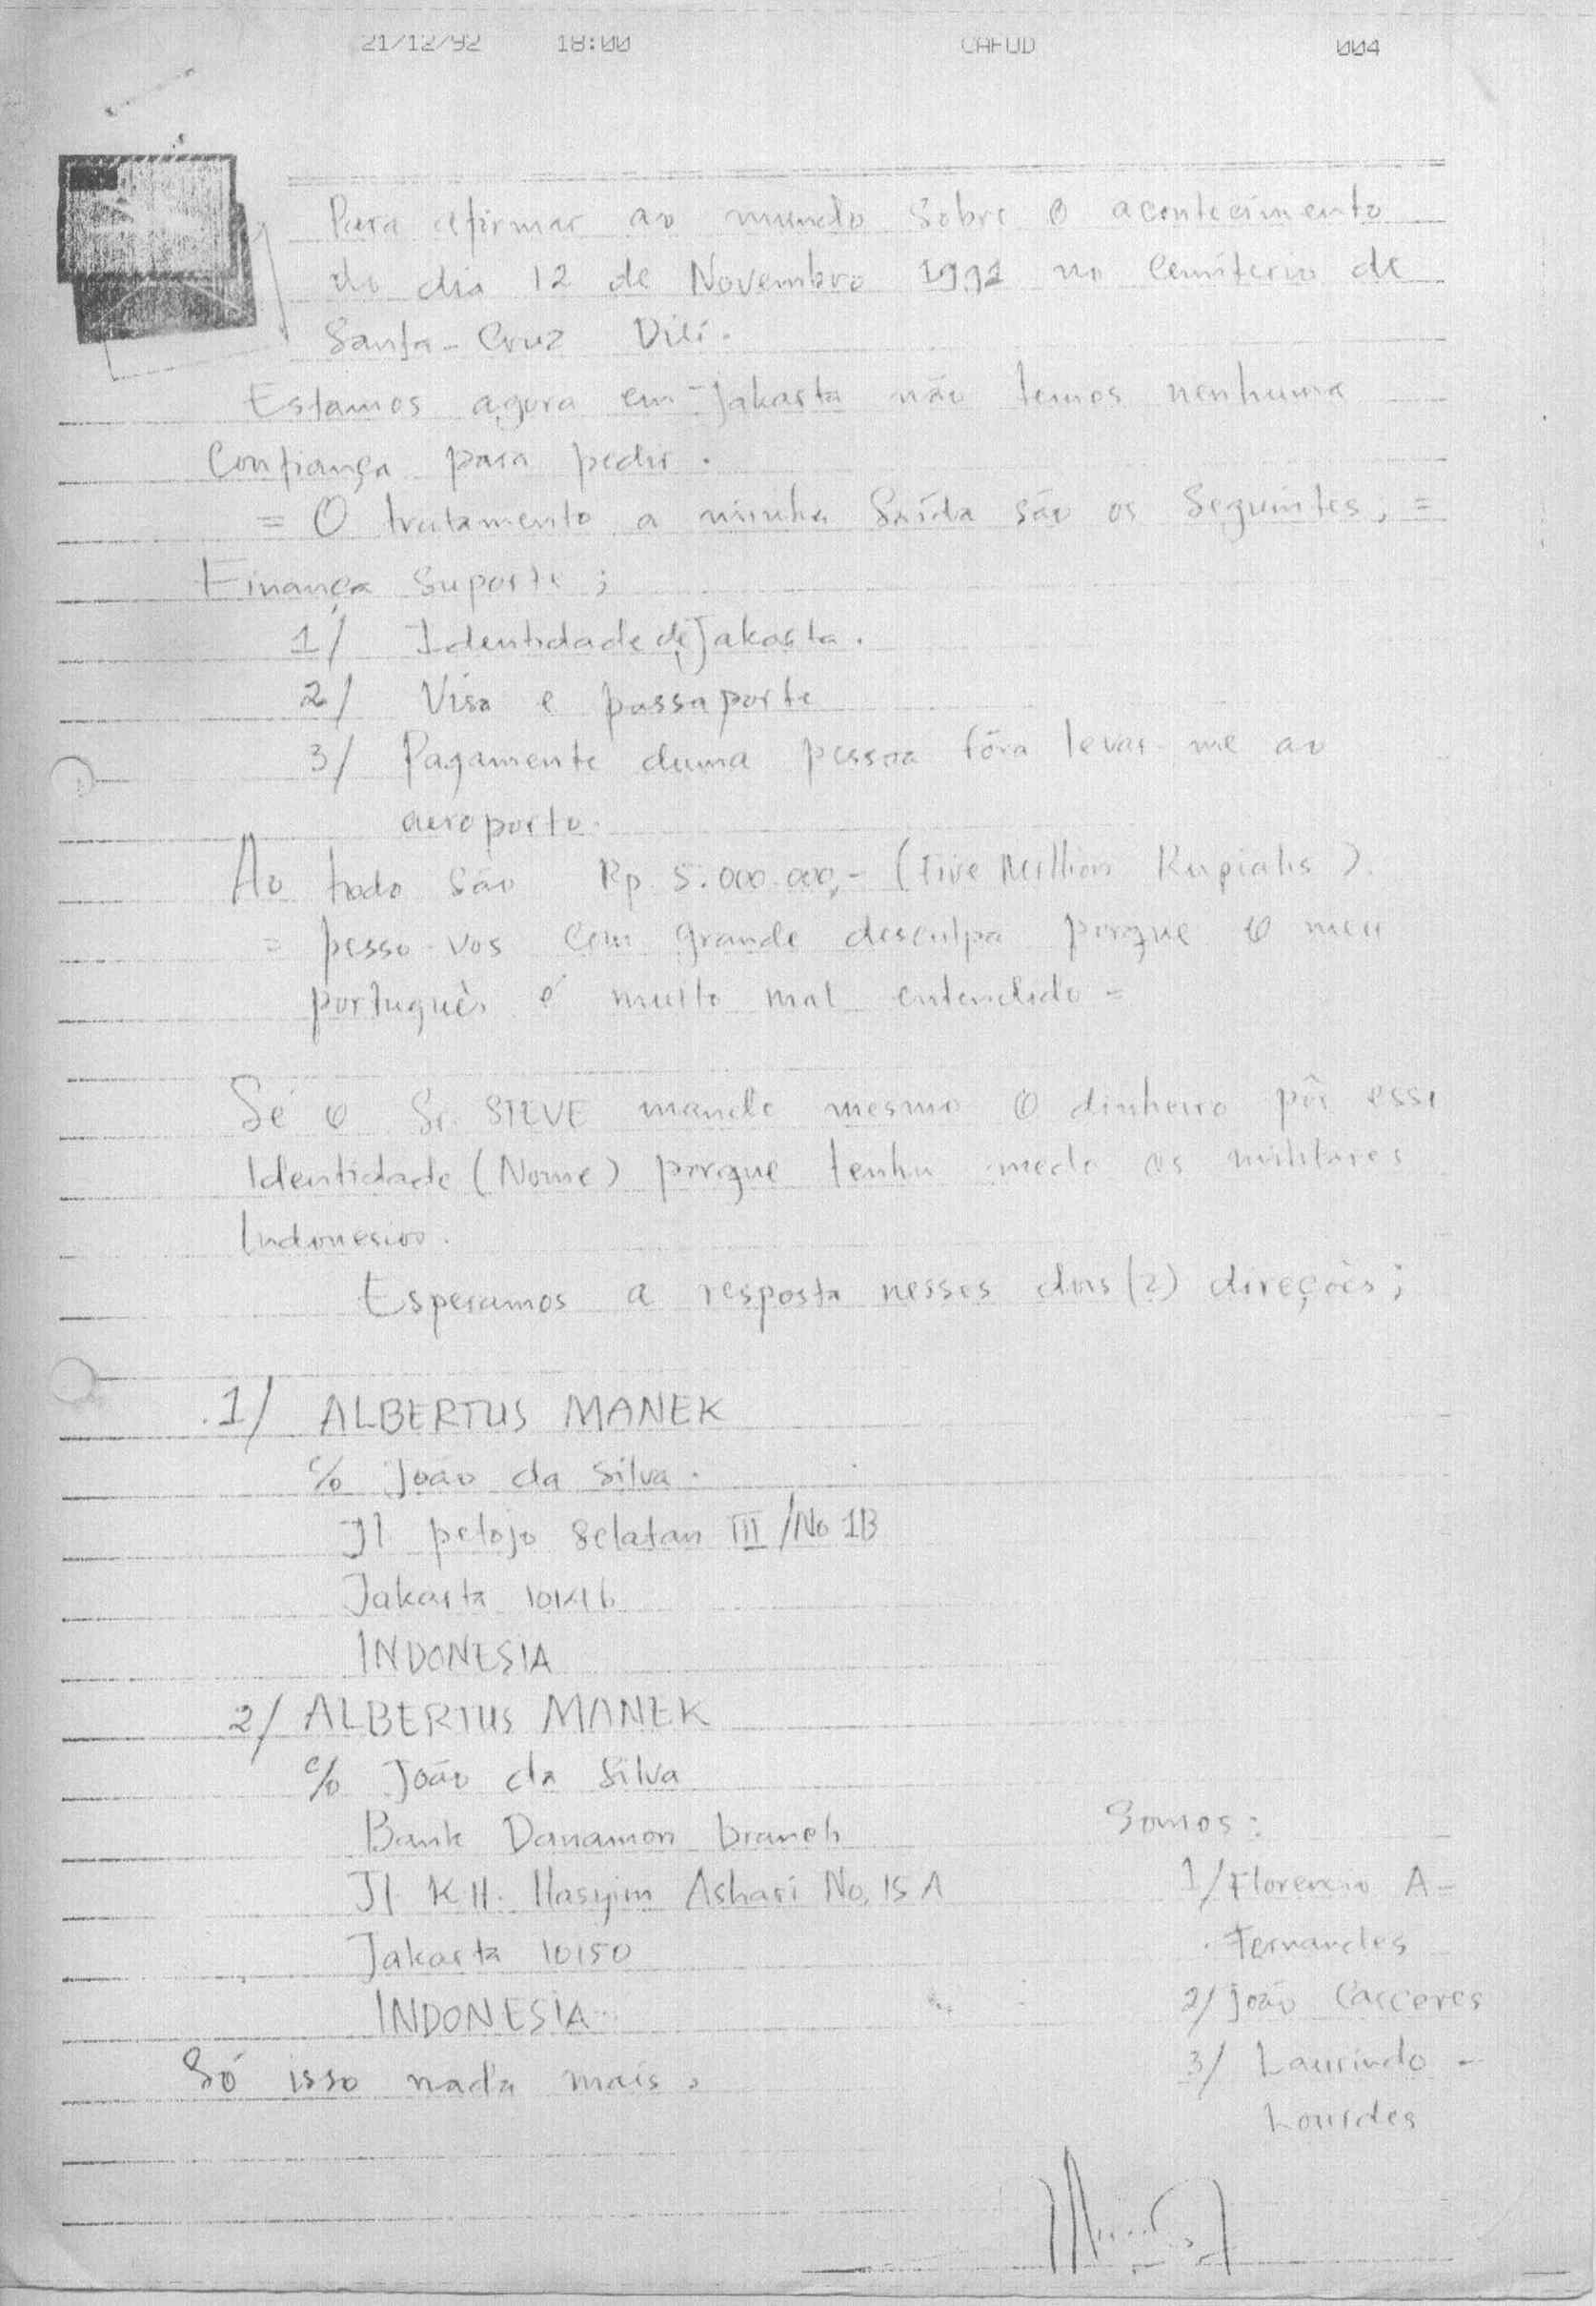 21/12/92 18:00 CAFOD 004
Para afirmar ao mundo sobre o acontecimento
do dia 12 de Novembro 1991 no Cemiterio de
Santa-Cruz Dili.
Estamos agora em Jakarta não temos nenhuma
Confiança para pedir.
= O tratamento a minha Saída são os Seguintes; =
Finança Suporte;
1/ Identidade de Jakarta.
2/ Visa e passaporte
3/ Pagamente duma pessoa fóra levar-me ao
aeroporto.
Ao todo são Rp 5.000.000,- (Five Million Rupiahs).
= pesso-vos com grande desculpa porque o meu
português é muito mal entendido =
Sé o Sr. STEVE mande mesmo o dinheiro pôr esse
Identidade (Nome) porque tenho medo os militares
Indonesios.
Esperamos a resposta nesses dois (2) direções;
1/ ALBERTUS MANEK
c/o João da Silva.
Jl petojo Selatan III/No 1B
Jakarta
INDONESIA
2/ ALBERTUS MANEK
c/o João da Silva
Bank Danamon branch
Jl K.H. Hasyim Ashari No. 15 A
Jakarta 10150
INDONESIA
Só isso nada mais.
Somos:
1/ Florencio A-
Fernandes
2/ João Casceres
3/ Laurindo -
Lourdes